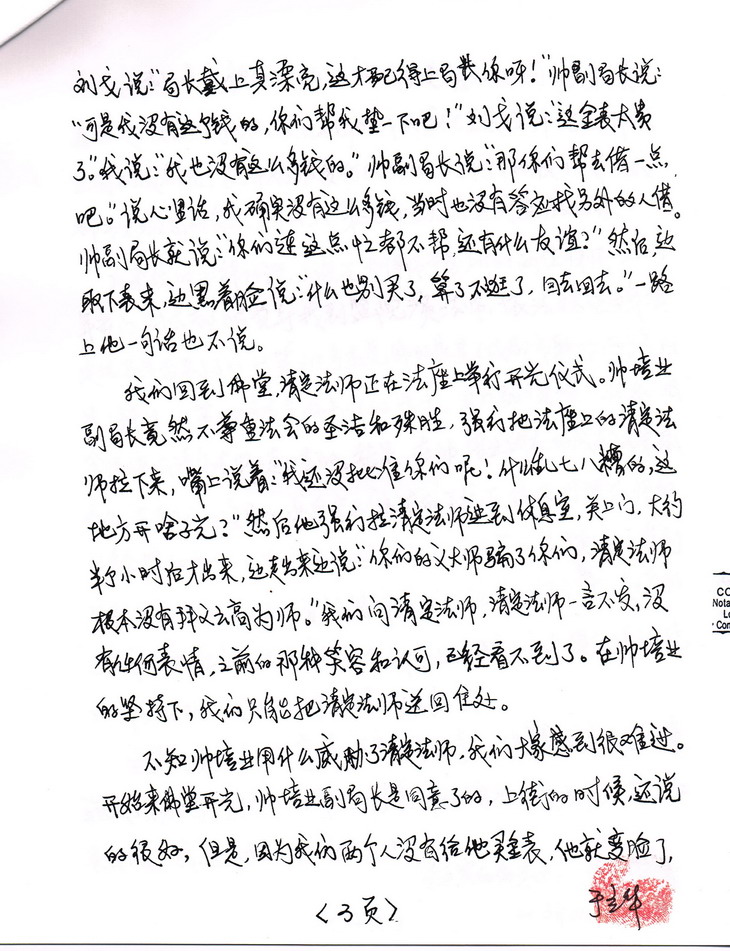 刘戈说："局长戴上真漂亮,这才配得上局长你呀！"帅副局长说:
"可是我没有这个钱的,你们帮我垫一下吧！"刘戈说:"这金表太贵
了。"我说:"我也没有这么多钱的。"帅副局长说:"那你们帮去借一点
吧。"说心里话,我确实没有这么多钱,当时也没有答应找另外的人借。
帅副局长就说:"你们连这点忙都不帮,还有什么友谊?"然后,边
取下表来,边黑着脸说:"什么也别买了,算了不逛了,回去回去。"一路
上他一句话也不说。
我们回到佛堂,清定法师正在法座上举行开光仪式。帅培业
副局长竟然不尊重法会的圣洁和殊胜,强行把法座上的清定法
师拉下来,嘴上说着:"我还没批准你们呢！什么乱七八糟的,这
地方开啥子光?"然后他强行拉清定法师进到休息室,关上门,大约
半个小时后才出来,边走出来边说:"你们的义大师骗了你们,清定法师
根本没有拜义云高为师。"我们问清定法师,清定法师一言不发,没
有任何表情,之前的那种笑容和认可,已经看不到了。在帅培业
的坚持下,我们只能把清定法师送回住处。
不知帅培业用什么威胁了清定法师,我们大家感到很难过。
开始来佛堂开光,帅培业副局长是同意了的,上街的时候,还说
的很好,但是,因为我们两个人没有给他买金表,他就变脸了,
〈3页〉
CO
Nota
Lo
Com